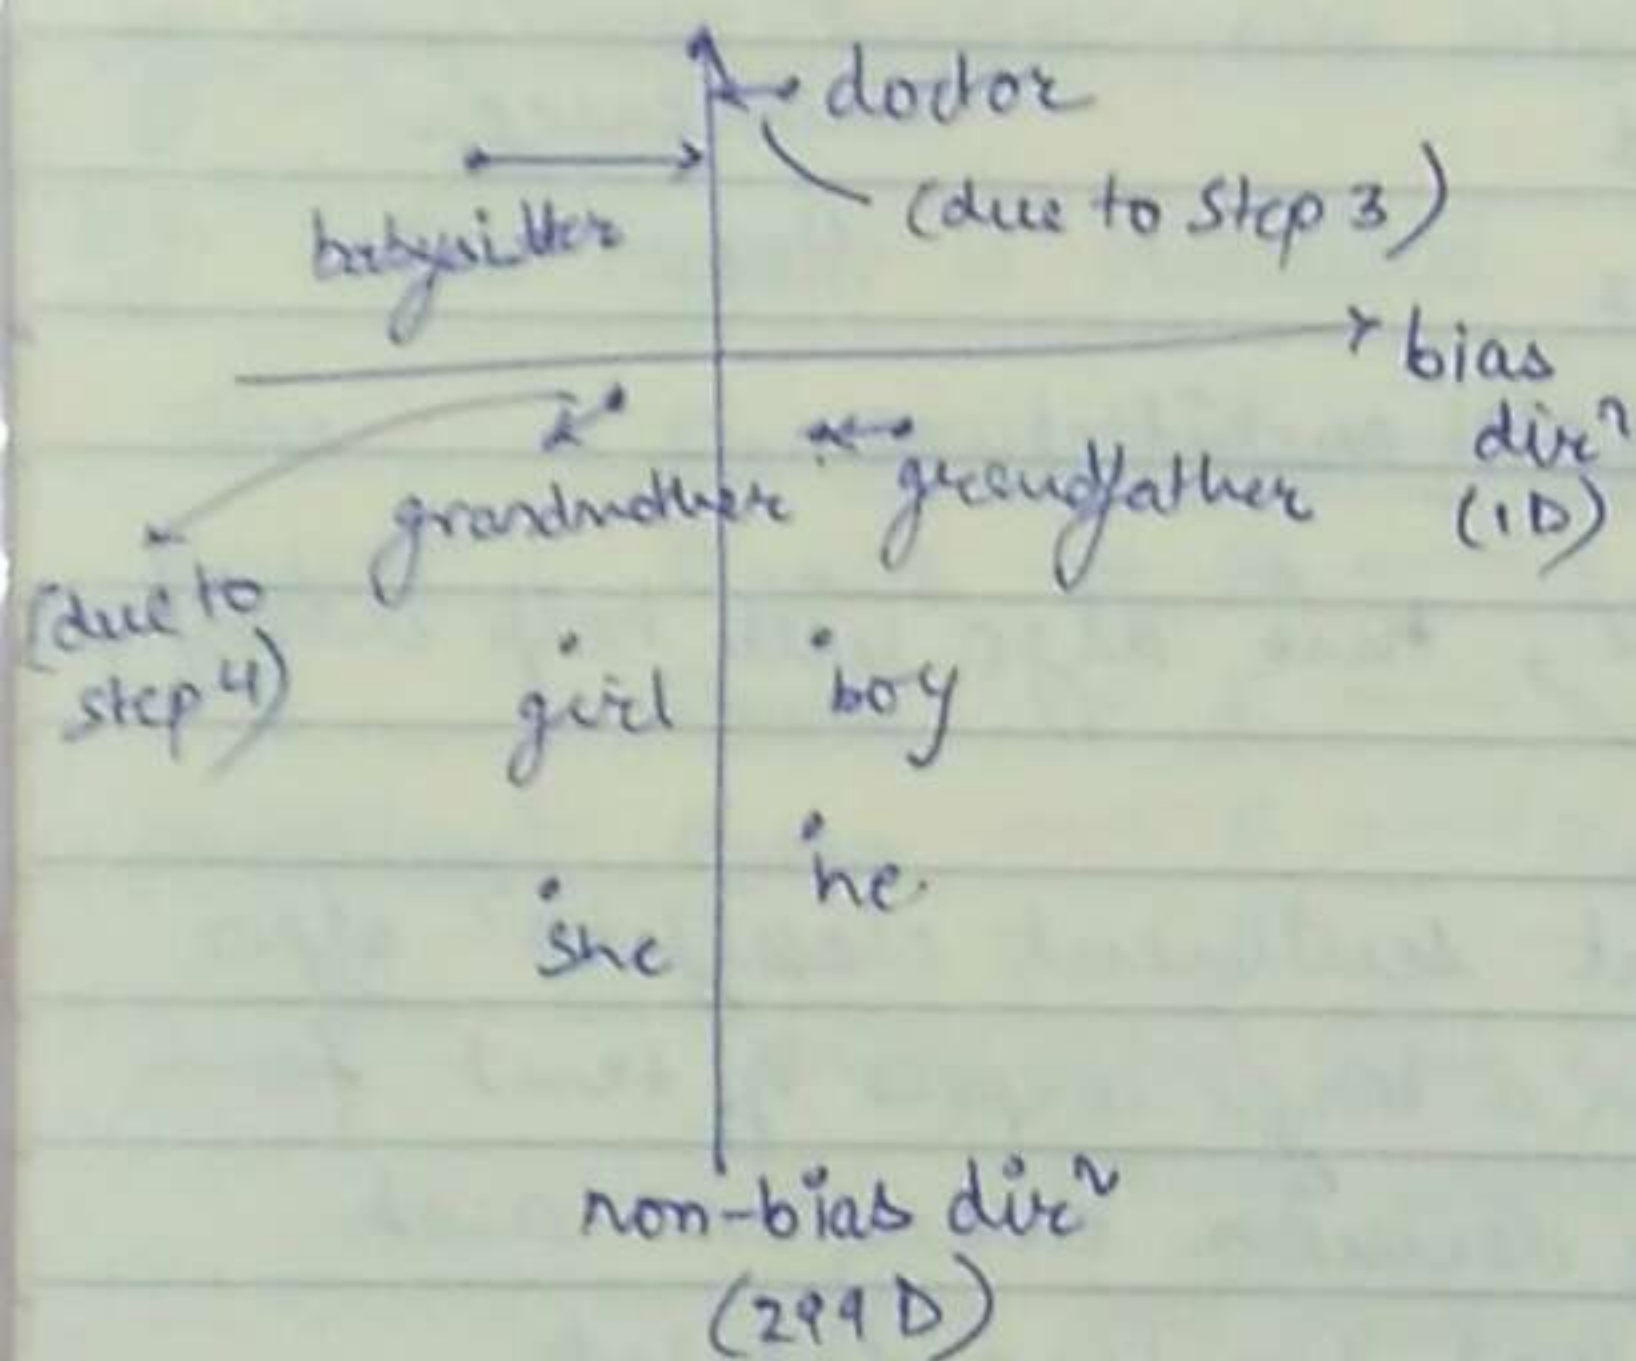 doctor
(due to Step 3)
babysitter
bias
dirⁿ
(1D)
grandmother
grandfather
(due to
step 4)
girl
boy
he
she
non-bias dirⁿ
(299 D)